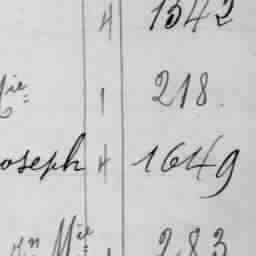 4 1542
Cie 1 218.
oseph 4 1649
Jn Mie 1 283